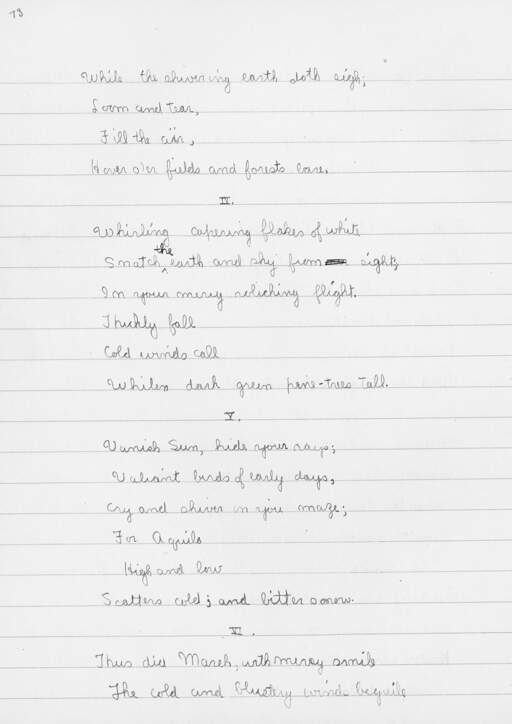 73
While the shivering earth doth sigh;
Loom and tear,
Fill the air,
Hover o'er fields and forests bare.
IV.
Whirling capering flakes of white
Snatch the earth and sky from sight,
In your mercy relishing flight.
Thickly fall
Cold winds call
Whiles dark green pine-trees tall.
V.
Vanish Sun, hide your rays;
Valiant birds of early days,
Cry and shiver in you maze;
For Aquilo
High and low
Scatters cold; and bitter sorrow.
VI.
Thus did March, with mercy smile
The cold and blustery winds beguile